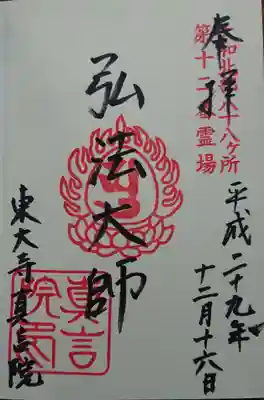 奉拝
大和北部八十八ヶ所
第十二番霊場
平成二十九年
十二月十六日
弘法大師
東大寺真言院
真言
院印